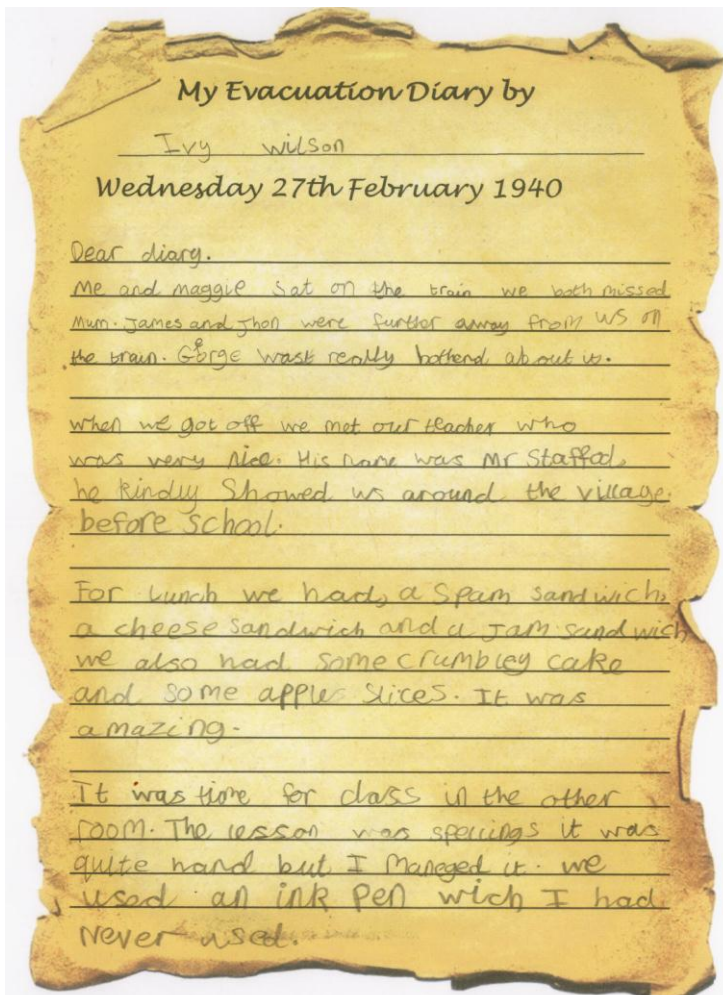 My Evacuation Diary by
Ivy wilson
Wednesday 27th February 1940
Dear diary.
Me and maggie sat on the train we both missed
Mum. James and Jhon were further away from us on
the train. George wast really botherd about us.
when we got off we met our teacher who
was very nice. His name was Mr Staffod,
he kindly showed us around the village.
before school.
For Lunch we had, a Spam sandwich,
a cheese sandwich and a Jam sandwich
we also had some crumbley cake
and some apple slices. It was
amazing.
It was time for class in the other
room. The lesson was spellings it was
quite hard but I maneged it. we
used an ink pen wich I had
never used.